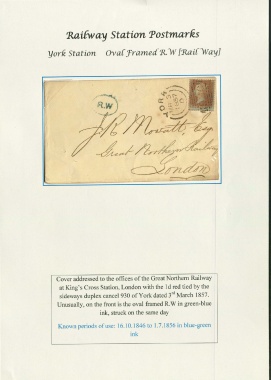 Railway Station Postmarks
York Station Oval Framed R.W [Rail Way]
R.W
YORK
J. R. Mowatt Esq
Great Northern Railway
London
Cover addressed to the offices of the Great Northern Railway
at King's Cross Station, London with the 1d red tied by the
sideways duplex cancel 930 of York dated 3rd March 1857.
Unusually, on the front is the oval framed R.W in green-blue
ink, struck on the same day
Known periods of use: 16.10.1846 to 1.7.1856 in blue-green
ink